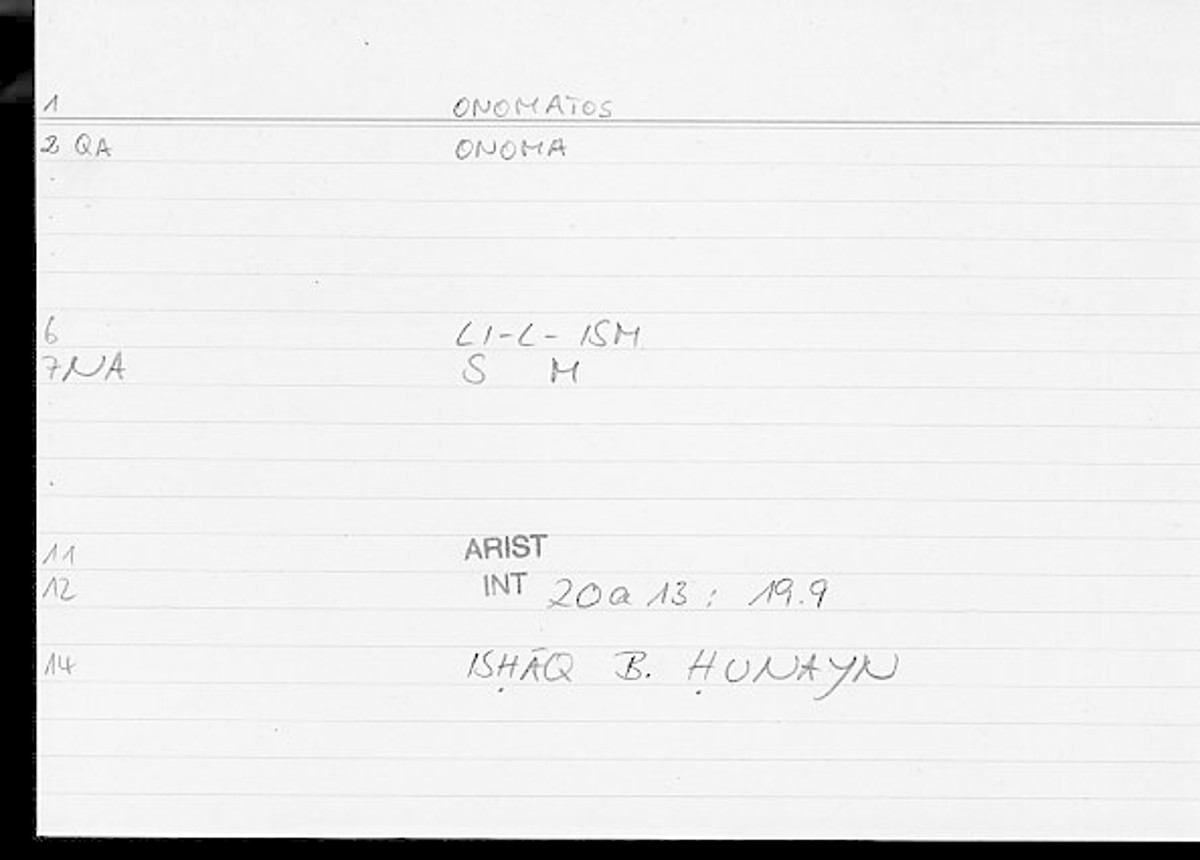 1 ONOMATOS
2 QA ONOMA
6 LI-L-ISM
7NA S M
11 ARIST
12 INT 20a13: 19.9
14 ISḤĀQ B. ḤUNAYN